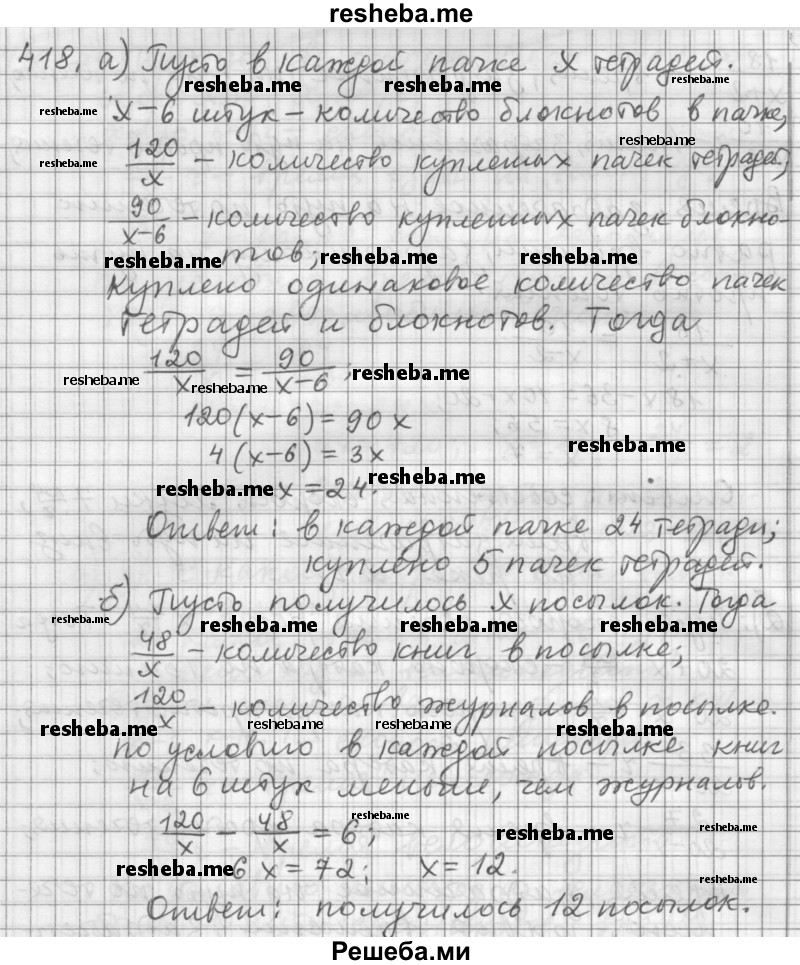 resheba.me
418. а) Пусть в каждой пачке x тетрадей.
resheba.me resheba.me resheba.me
resheba.me x-6 штук - количество блокнотов в пачке;
resheba.me
resheba.me 120/x - количество купленных пачек тетрадей;
90/x-6 - количество купленных пачек блокно-
resheba.me тов; resheba.me resheba.me
Куплено одинаковое количество пачек
тетрадей и блокнотов. Тогда
resheba.me 120/x resheba.me = 90/x-6; resheba.me
120(x-6) = 90x
4(x-6) = 3x resheba.me
resheba.me x = 24. resheba.me
Ответ: в каждой пачке 24 тетради;
куплено 5 пачек тетрадей.
б) Пусть получилось x посылок. Тогда
resheba.me resheba.me resheba.me resheba.me
48/x - количество книг в посылке;
120/x - количество журналов в посылке.
resheba.me resheba.me resheba.me resheba.me
По условию в каждой посылке книг
на 6 штук меньше, чем журналов.
120/x - 48/x = 6; resheba.me resheba.me resheba.me
resheba.me 6x = 72; x = 12. resheba.me
Ответ: получилось 12 посылок.
Решеба.ми